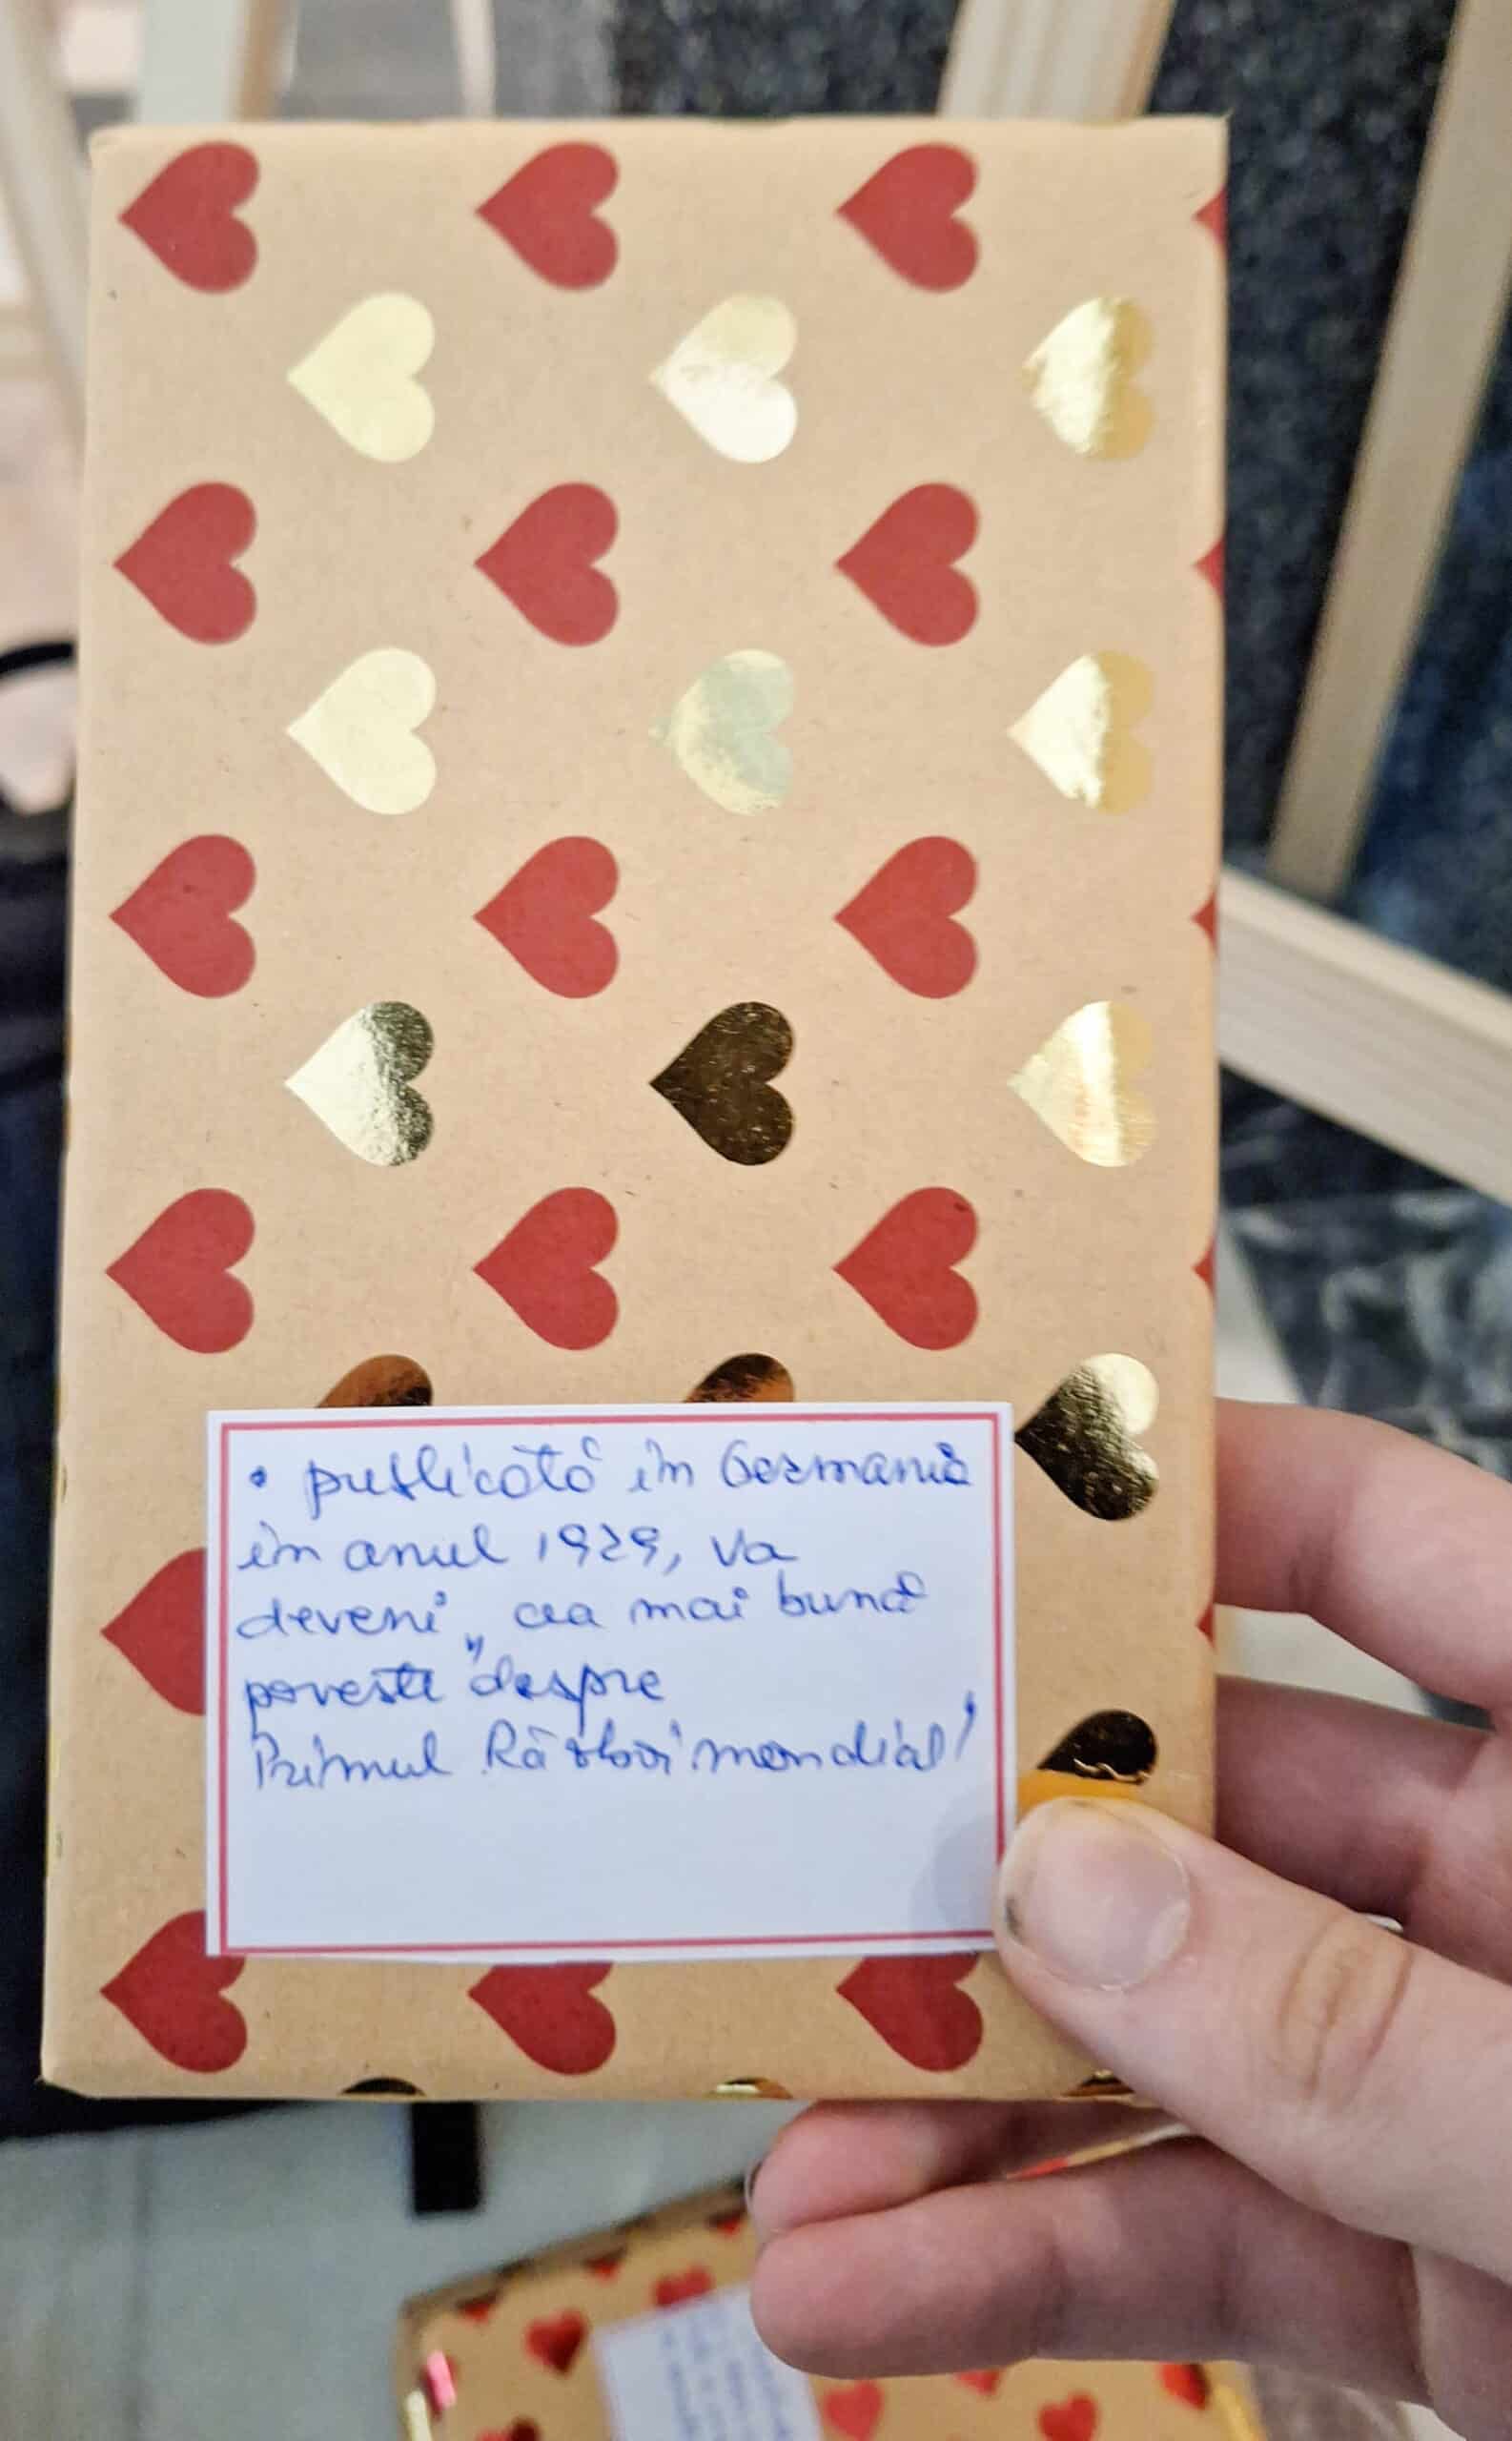 • publicată în Germania
în anul 1929, va
deveni „cea mai bună
poveste" despre
Primul Război mondial!